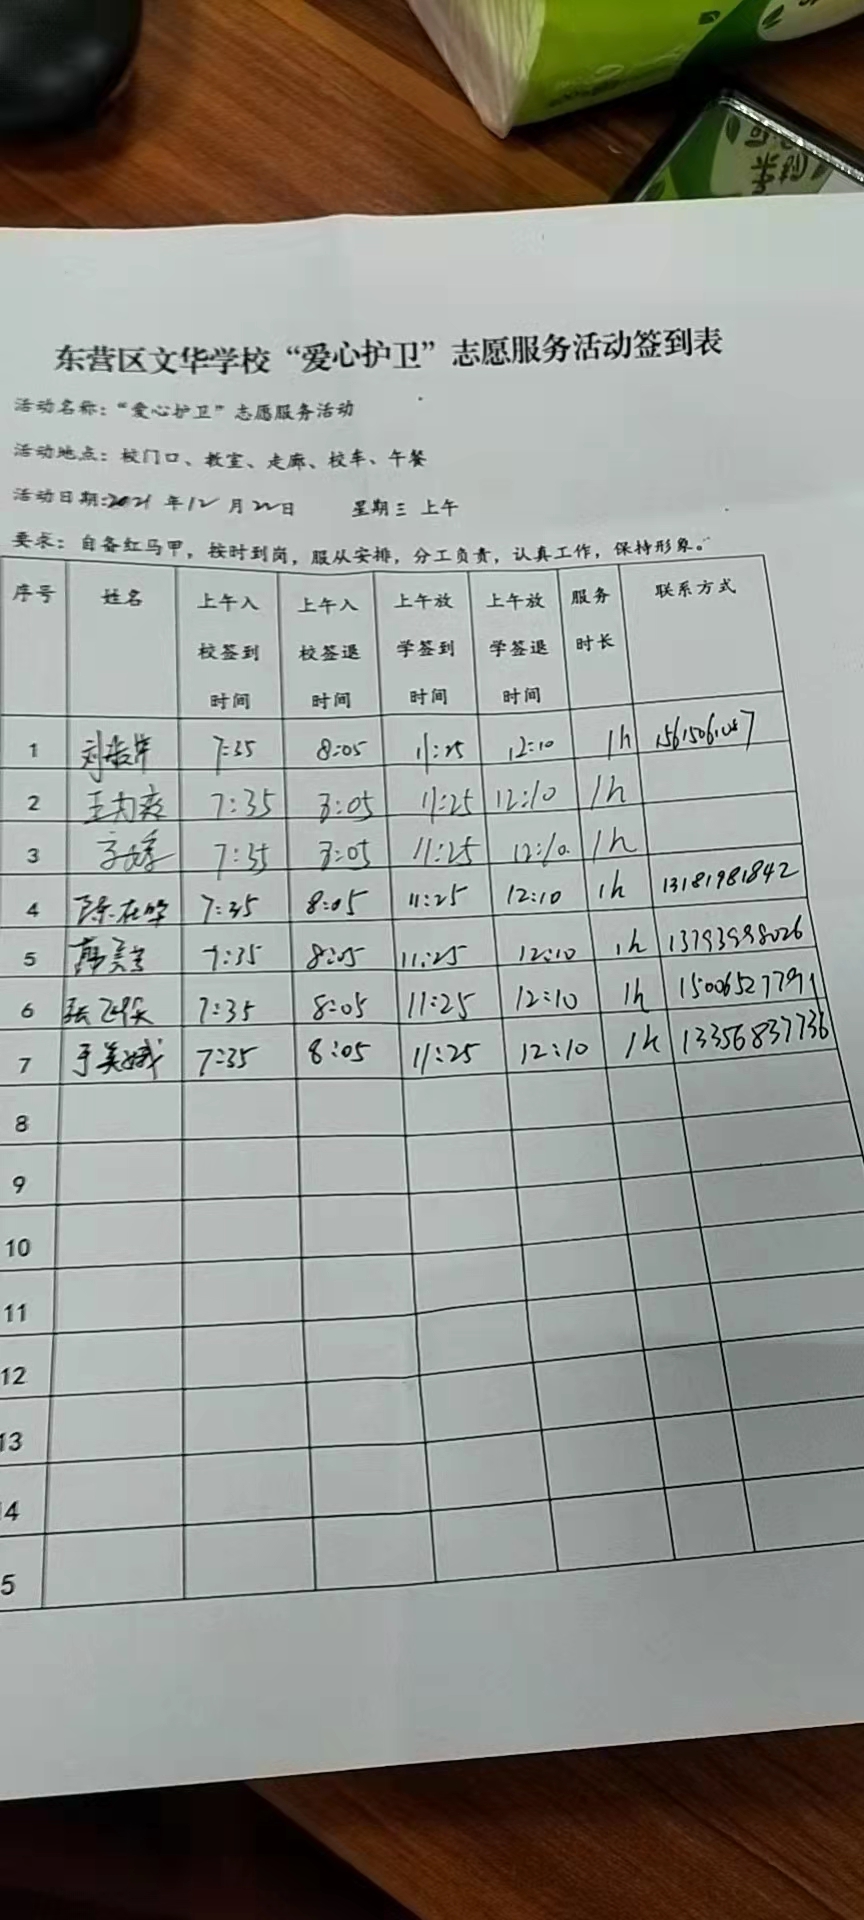 东营区文华学校“爱心护卫”志愿服务活动签到表
活动名称：“爱心护卫”志愿服务活动
活动地点：校门口、教室、走廊、校车、午餐
活动日期:2021 年12 月22日 星期三 上午
要求：自备红马甲，按时到岗，服从安排，分工负责，认真工作，保持形象。
序号 姓名 上午入校签到时间 上午入校签退时间 上午放学签到时间 上午放学签退时间 服务时长 联系方式
1 7:35 8:05 11:25 12:10 1h
2 7:35 8:05 11:25 12:10 1h
3 7:35 8:05 11:25 12:10 1h
4 7:35 8:05 11:25 12:10 1h 13181981842
5 7:35 8:05 11:25 12:10 1h 13793998026
6 7:35 8:05 11:25 12:10 1h 15006527791
7 于美娥 7:35 8:05 11:25 12:10 1h 13356837736
8
9
10
11
12
13
14
5